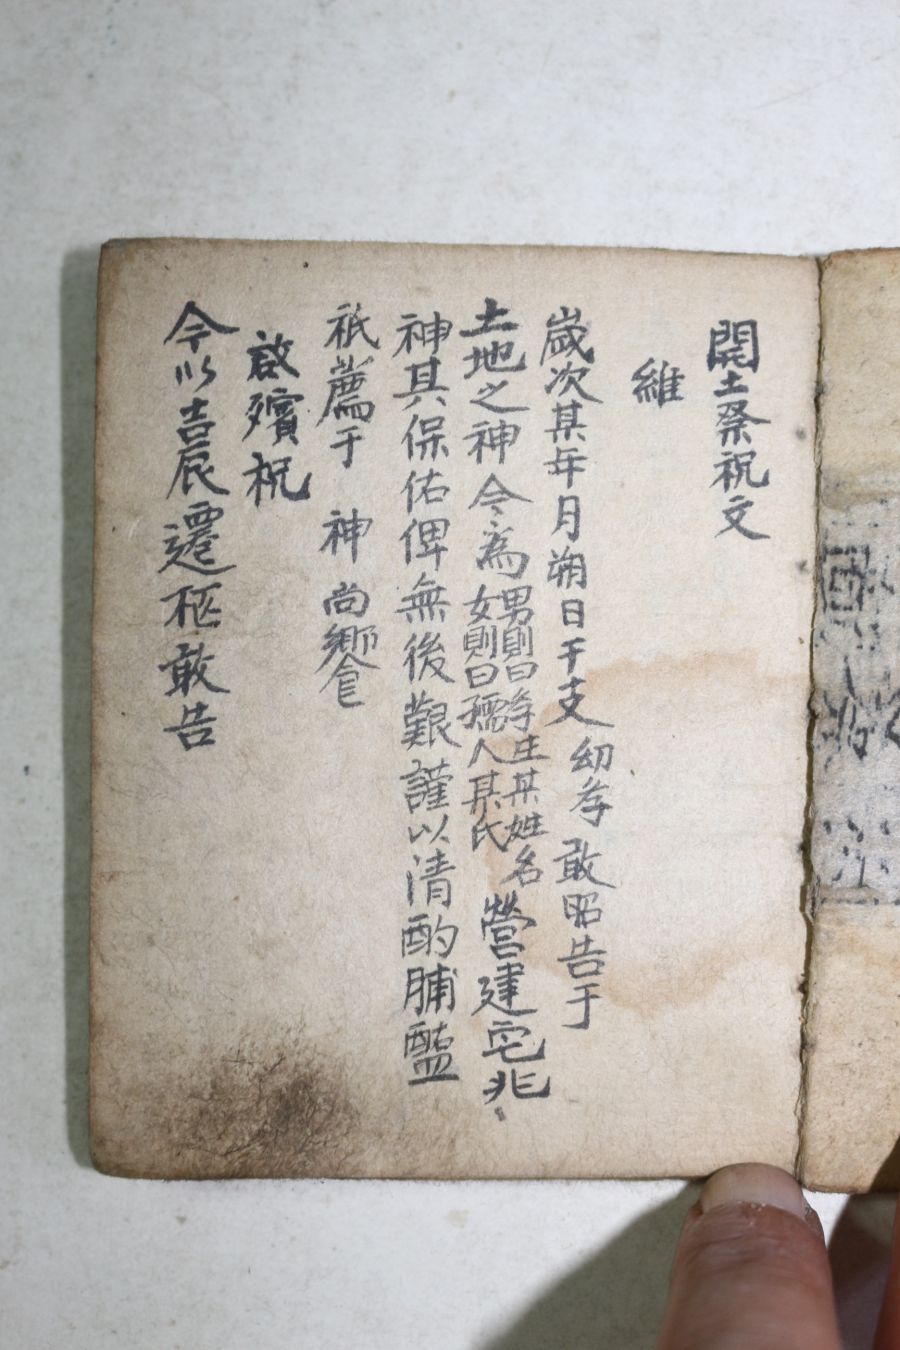 開土祭祝文
維
歲次某年月朔日干支 幼孝 敢昭告于
土地之神今爲 男則曰學生某姓名 女則曰孺人某氏 營建宅兆
神其保佑俾無後艱謹以清酌脯醢
祇薦于 神尚饗
啟殯祝
今以吉辰遷柩敢告